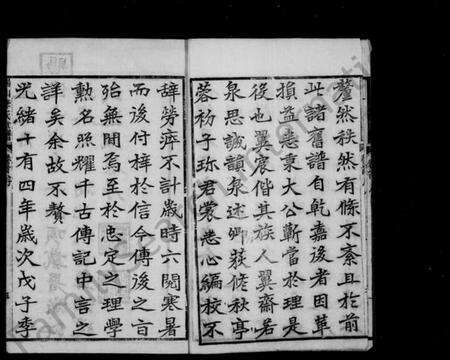 釐然秩然有條不紊且於前
此諸舊譜自乾嘉後者因革
損益悉秉大公斬當於理是
役也翼宸偕其族人翼齋若
泉思誠讀泉述卿荻修秋亭
蓉初子珍君裳悉心編校不
辭勞瘁不計歲時六閱寒暑
而後付梓於信今傳後之言
殆無間焉至於忠定之理學
勲名照耀千古傳記中言之
詳矣余故不贅
光緒十有四年歲次戊子季